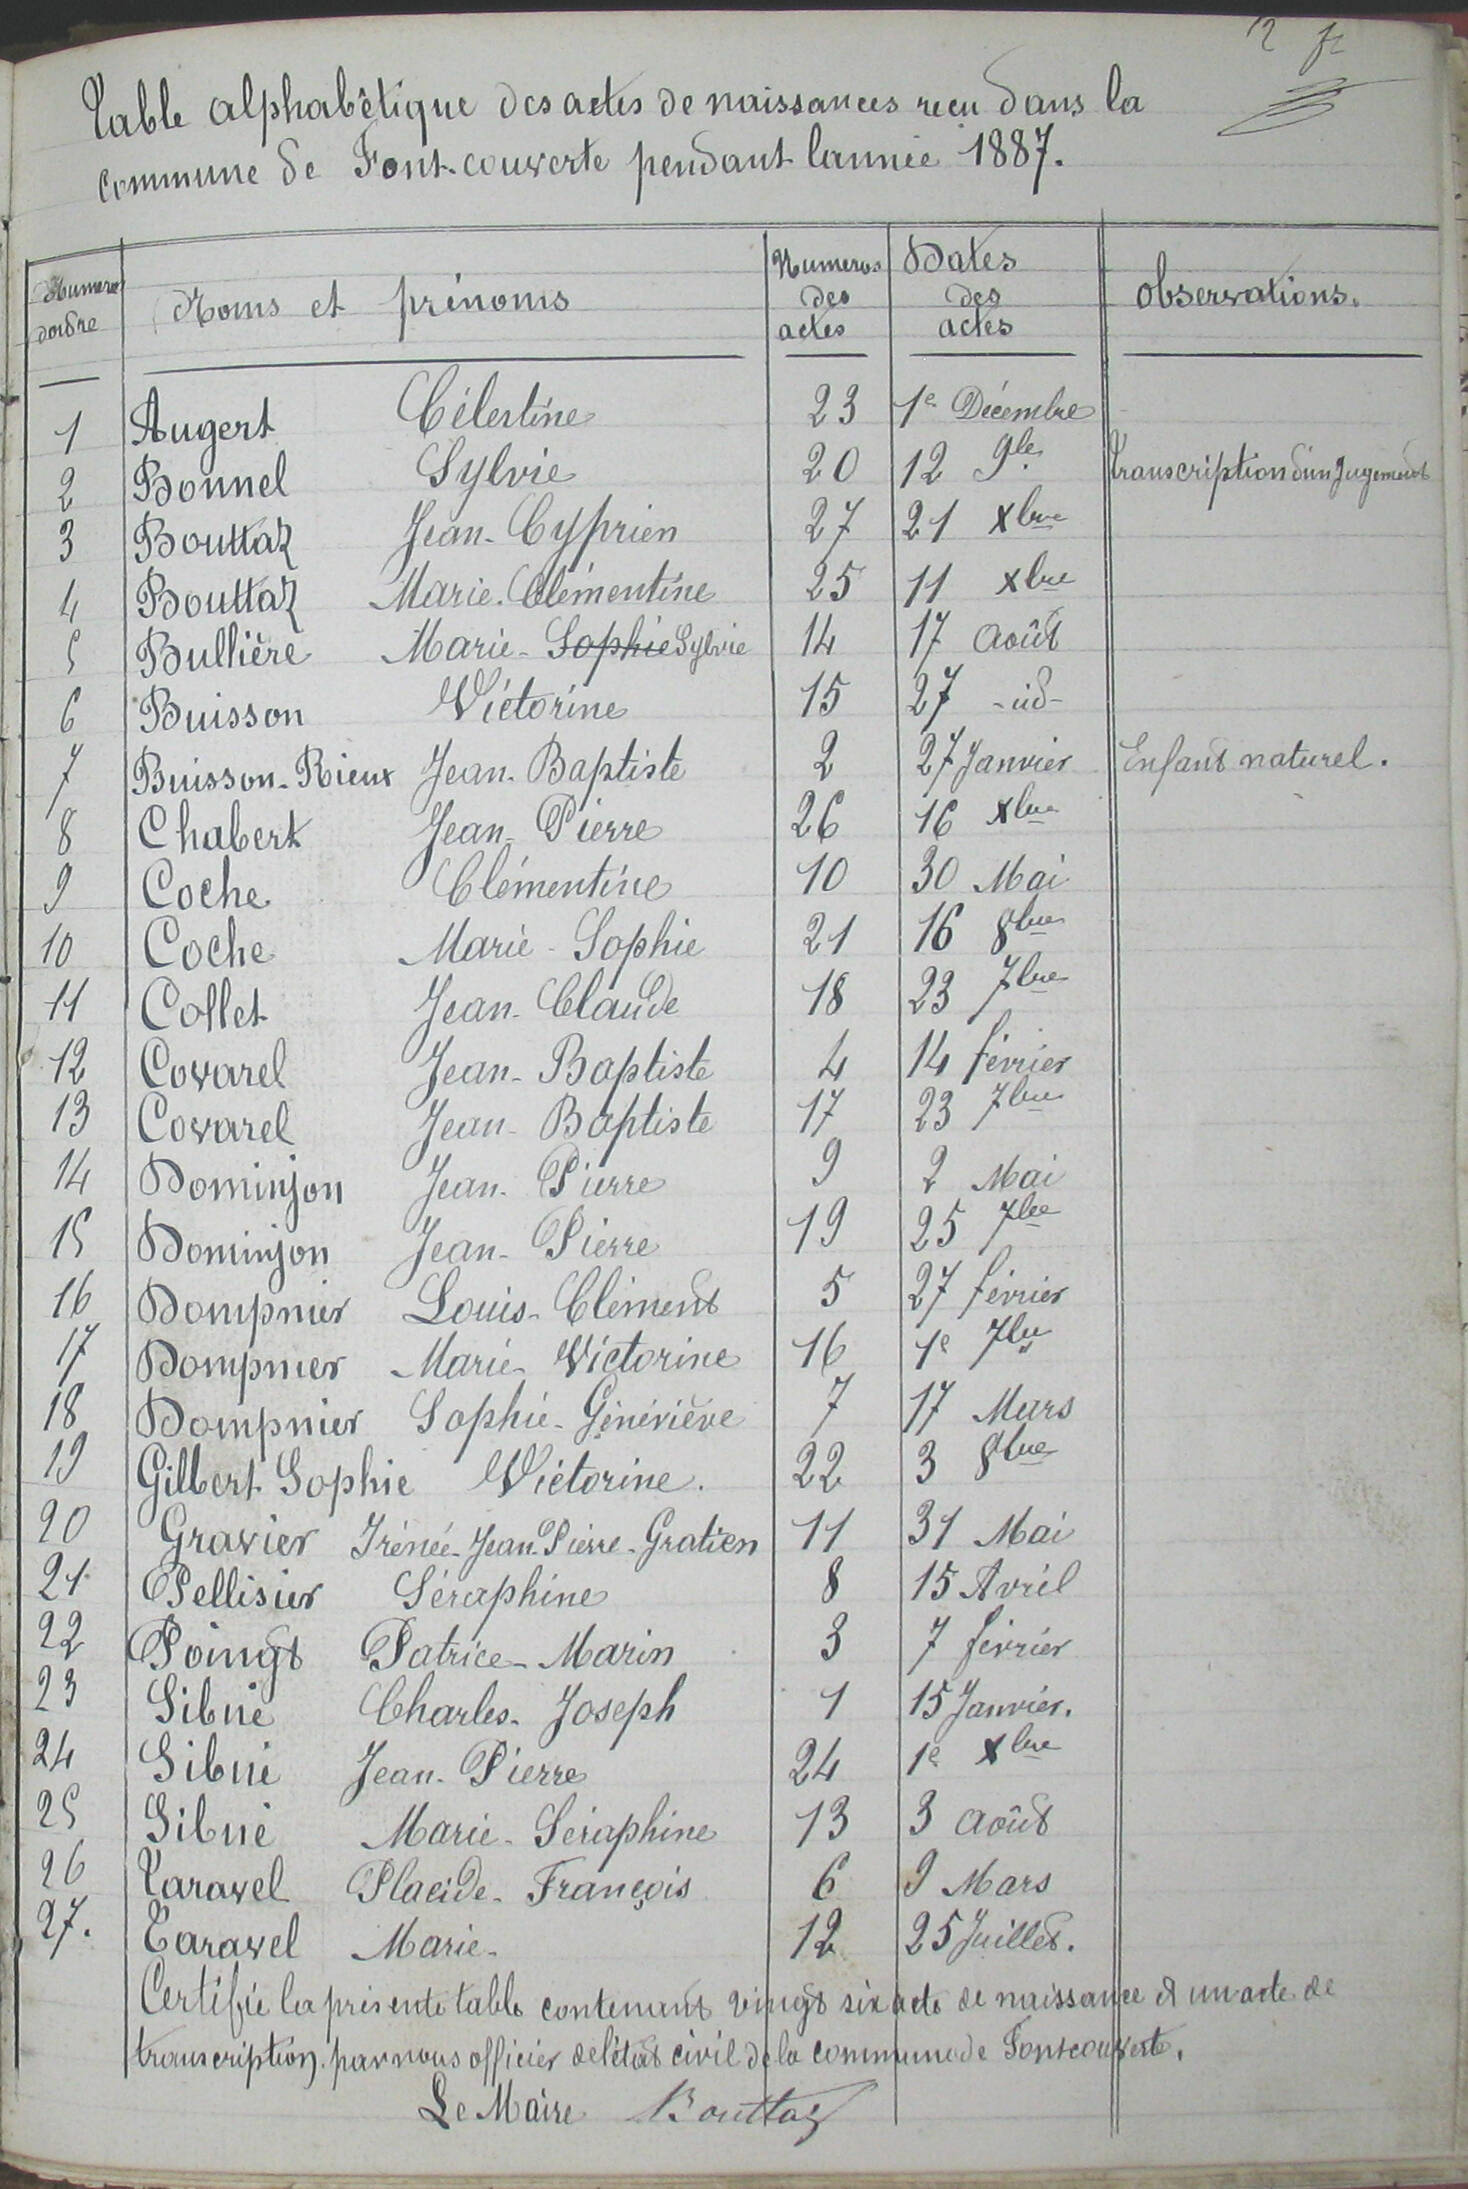 Table alphabêtique des actes de naissances recu dans la
commune de Font-couverte pendant lannée 1887.
Numero dordre Noms et prénoms Numeros des actes Dates des actes Observations.
1 Augert Célestine 23 1e Décembre
2 Bonnel Sylvie 20 12 9bre Transcription d'un Jugement
3 Bouttaz Jean-Cyprien 27 21 Xbre
4 Bouttaz Marie-Clémentine 25 11 Xbre
5 Bullière Marie-Sophie Sylvie 14 17 Août
6 Buisson Victorine 15 27 -id-
7 Buisson-Rieux Jean-Baptiste 2 27 Janvier Enfant naturel.
8 Chabert Jean-Pierre 26 16 Xbre
9 Coche Clémentine 10 30 Mai
10 Coche Marie-Sophie 21 16 8bre
11 Collet Jean-Claude 18 23 7bre
12 Covarel Jean-Baptiste 4 14 février
13 Covarel Jean-Baptiste 17 23 7bre
14 Dominjon Jean-Pierre 9 2 Mai
15 Dominjon Jean-Pierre 19 25 7bre
16 Dompnier Louis-Clément 5 27 février
17 Dompnier Marie-Victorine 16 1e 7bre
18 Dompnier Sophie-Généviève 7 17 Mars
19 Gilbert Sophie Victorine. 22 3 8bre
20 Gravier Irénée-Jean-Pierre-Gratien 11 31 Mai
21 Pellisier Séraphine 8 15 Avril
22 Poingt Patrice-Marin 3 7 février
23 Sibué Charles-Joseph 1 15 Janvier.
24 Sibué Jean-Pierre 24 1e Xbre
25 Sibué Marie-Séraphine 13 3 Août
26 Taravel Placide-François 6 9 Mars
27. Taravel Marie- 12 25 Juillet.
Certifié la présente table contenant vingt six acte de naissance et un acte de
transcription. par nous officier de l'état civil de la commune de Fontcouverte.
Le Maire Bouttaz